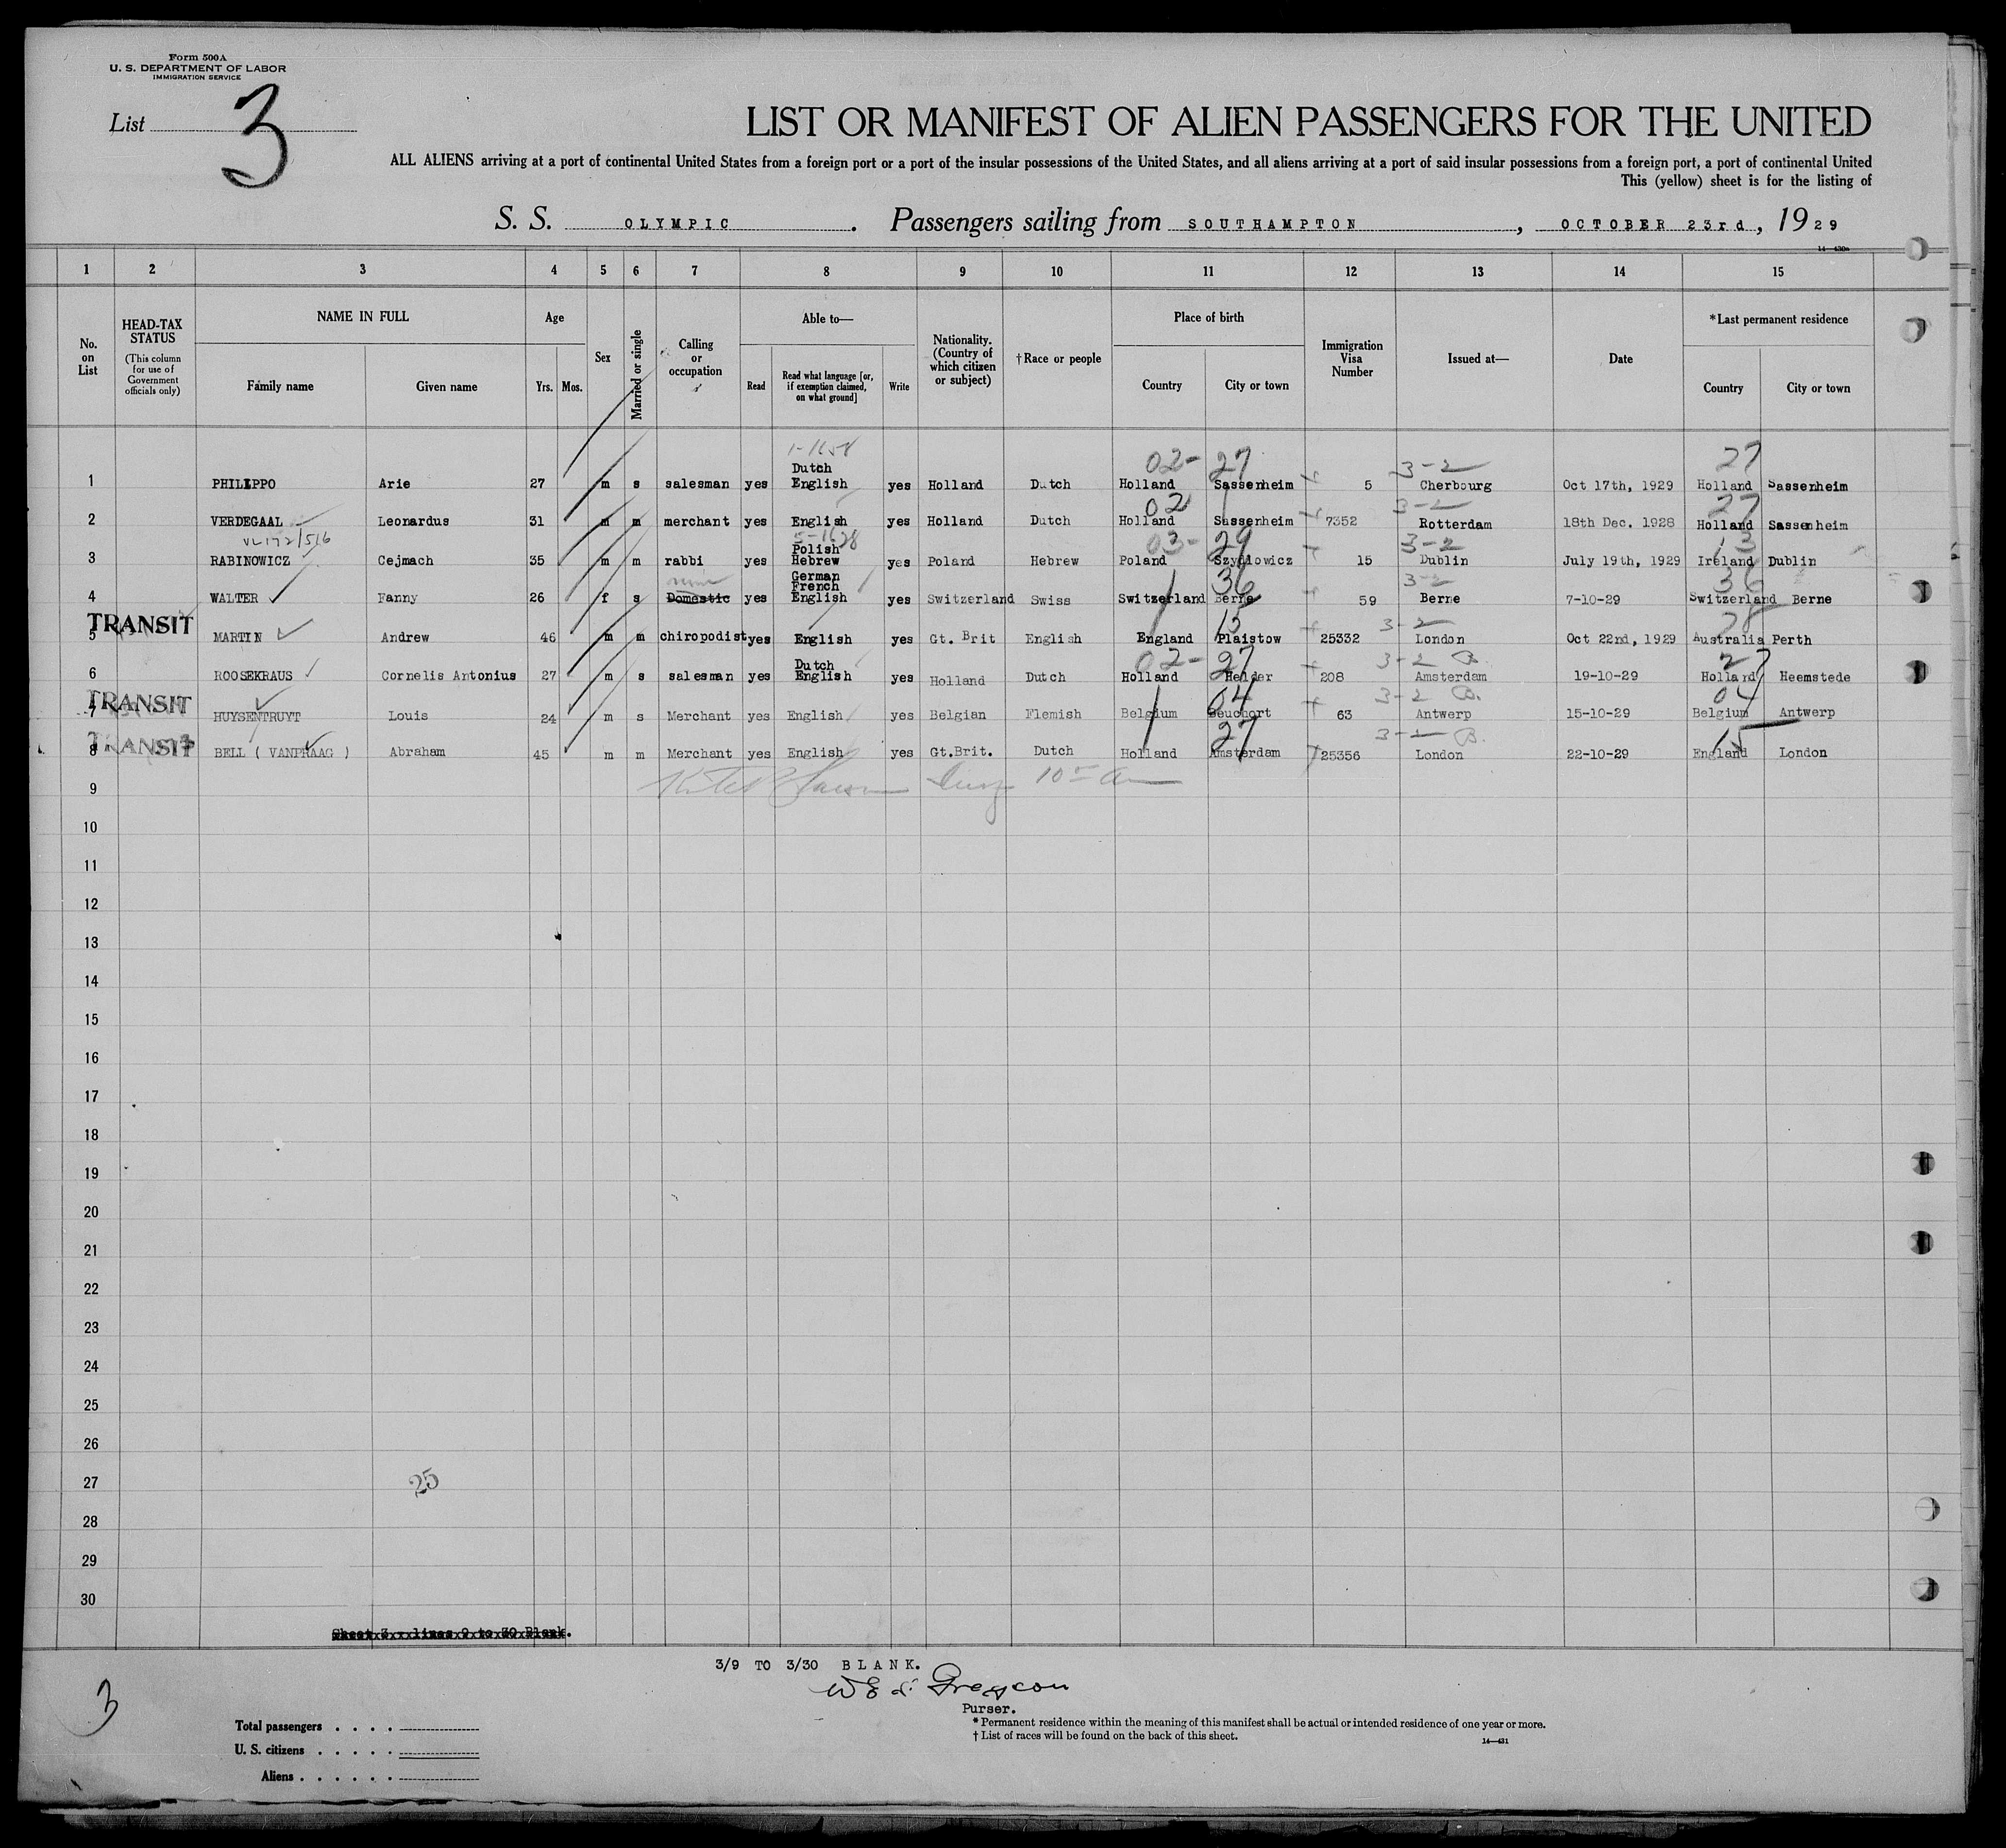 Form 500A
U. S. DEPARTMENT OF LABOR
IMMIGRATION SERVICE
List 3
LIST OR MANIFEST OF ALIEN PASSENGERS FOR THE UNITED
ALL ALIENS arriving at a port of continental United States from a foreign port or a port of the insular possessions of the United States, and all aliens arriving at a port of said insular possessions from a foreign port, a port of continental United
This (yellow) sheet is for the listing of
S. S. OLYMPIC. Passengers sailing from SOUTHAMPTON, OCTOBER 23rd, 1929
14—430a
1 2 3 4 5 6 7 8 9 10 11 12 13 14 15
No. on List
HEAD-TAX STATUS (This column for use of Government officials only)
NAME IN FULL
Family name Given name
Age
Yrs. Mos.
Sex
Married or single
Calling or occupation
Able to—
Read
Read what language [or, if exemption claimed, on what ground]
Write
Nationality. (Country of which citizen or subject)
†Race or people
Place of birth
Country City or town
Immigration Visa Number
Issued at—
Date
*Last permanent residence
Country City or town
1-1158
02- 27 3-2 27
1 PHILIPPO Arie 27 m s salesman yes Dutch English yes Holland Dutch Holland Sassenheim 5 Cherbourg Oct 17th, 1929 Holland Sassenheim
02 3-2 27
2 VERDEGAAL Leonardus 31 m m merchant yes English yes Holland Dutch Holland Sassenheim 7352 Rotterdam 18th Dec. 1928 Holland Sassenheim
5-1628 03- 29 3-2 13
3 RABINOWICZ Cejmach 35 m m rabbi yes Polish Hebrew yes Poland Hebrew Poland Szydlowicz 15 Dublin July 19th, 1929 Ireland Dublin
36 3-2 36
4 WALTER Fanny 26 f s Domestic yes German French English yes Switzerland Swiss Switzerland Berne 59 Berne 7-10-29 Switzerland Berne
TRANSIT
15 3-2
5 MARTIN Andrew 46 m m chiropodist yes English yes Gt. Brit English England Plaistow 25332 London Oct 22nd, 1929 Australia Perth
02- 27 3-2 B. 27
6 ROOSEKRAUS Cornelis Antonius 27 m s salesman yes Dutch English yes Holland Dutch Holland Helder 208 Amsterdam 19-10-29 Holland Heemstede
TRANSIT
04 3-2 B. 04
7 HUYSENTRUYT Louis 24 m s Merchant yes English yes Belgian Flemish Belgium 63 Antwerp 15-10-29 Belgium Antwerp
TRANSIT
27 3-2 B. 15
8 BELL ( VANPRAAG ) Abraham 45 m m Merchant yes English yes Gt.Brit. Dutch Holland Amsterdam 25356 London 22-10-29 England London
9
10
11
12
13
14
15
16
17
18
19
20
21
22
23
24
25
26
27
25
28
29
30
Sheet 3 - lines 9 to 30 Blank.
3/9 TO 3/30 BLANK.
3
Purser.
* Permanent residence within the meaning of this manifest shall be actual or intended residence of one year or more.
† List of races will be found on the back of this sheet.
14—431
Total passengers . . . .
U. S. citizens . . . . .
Aliens . . . . . .